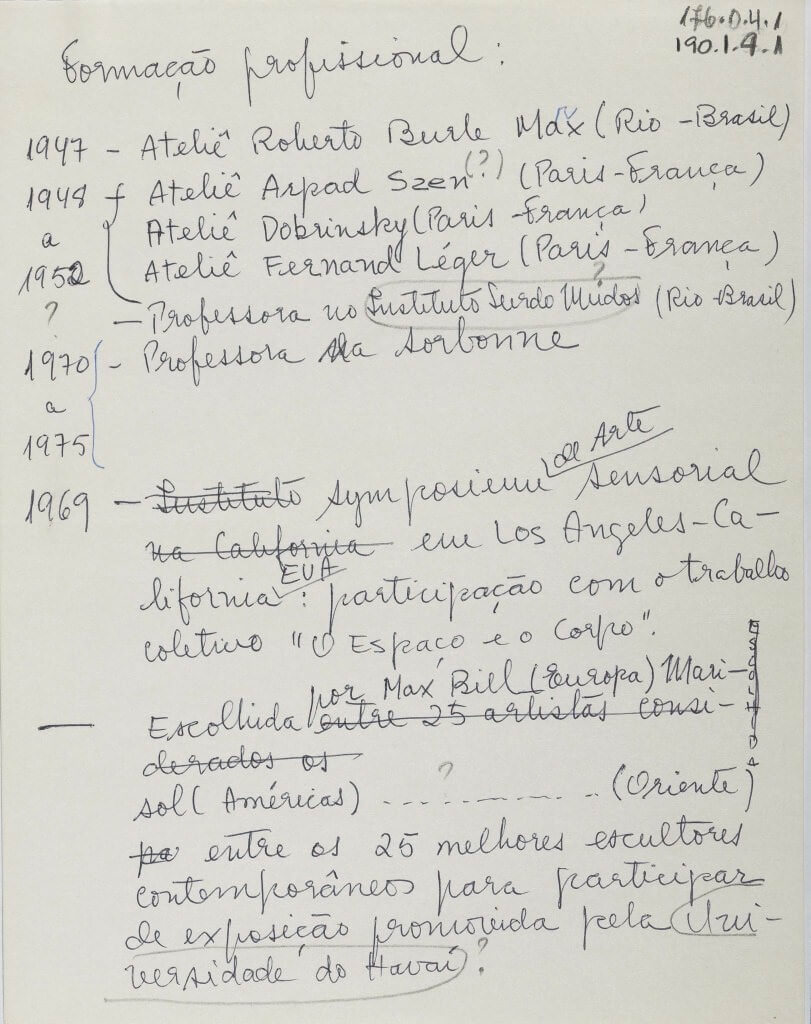 176.0.4.1
190.1.9.1
Formação profissional:
1947 - Ateliê Roberto Burle Max (Rio - Brasil)
1948 Ateliê Arpad Szen (?) (Paris - França)
a Ateliê Dobrinsky (Paris - França)
1952 Ateliê Fernand Léger (Paris - França)
?
? — Professora no Instituto Surdo Mudos (Rio - Brasil)
1970 - Professora na Sorbonne
a
1975
de Arte
1969 - Instituto Symposium Sensorial
na California em Los Angeles - Ca-
EUA
lifornia: participação com o trabalho
coletivo "O Espaço e o Corpo".
por Max Bill (Europa) Mari-
— Escolhida entre 25 artistas consi-
derados os
ESCOLHIDA
?
sol (Américas) ............ (Oriente)
pa entre os 25 melhores escultores
contemporâneos para participar
de exposição promovida pela Uni-
versidade do Havaí?